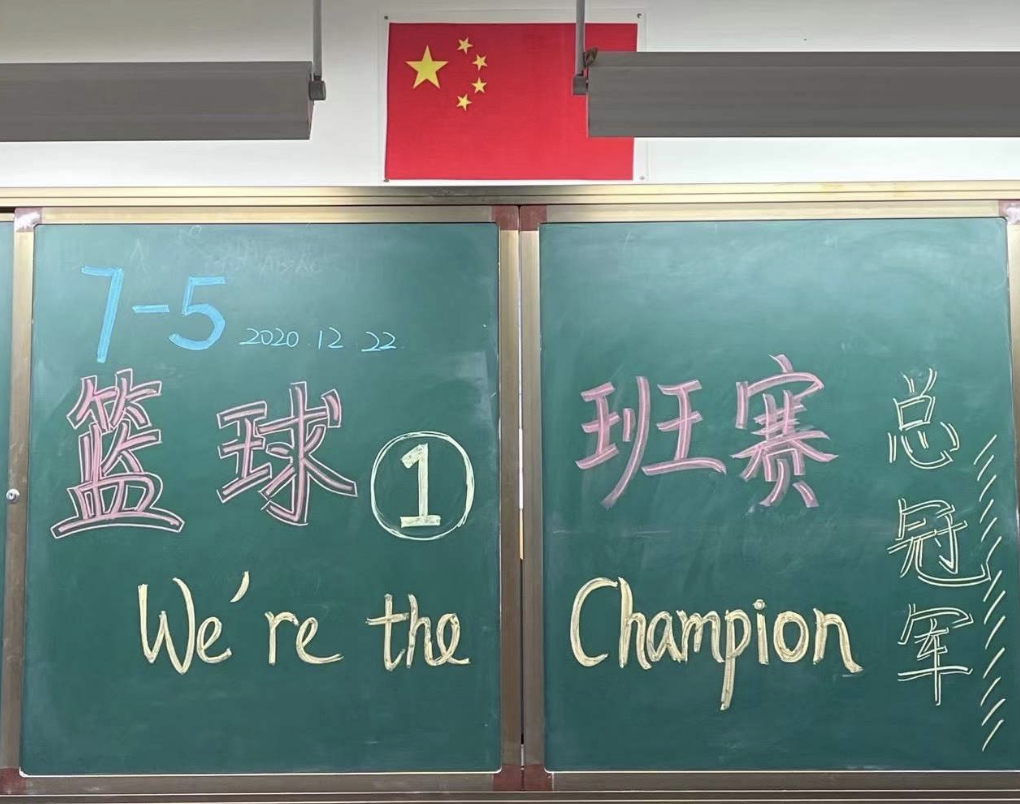 7-5 2020.12.22
篮球① 班赛
We're the Champion
总冠军